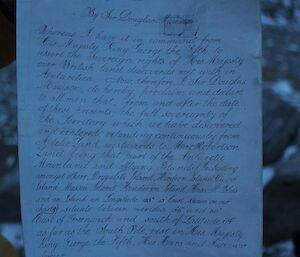 By Sir Douglas Mawson
Whereas I have it in command from
His Majesty King George the Fifth to
assert the sovereign rights of His Majesty
over British land discoveries met with in
Antarctica Now therefore I Sir Douglas
Mawson do hereby proclaim and declare
to all men that, from and after the date
of these presents the full sovereignty
of the Territory which we have discovered
and explored extending continuously from
Adelie Land westwards to MacRobertson
Land being that part of the Antarctic
Mainland and offlying Islands (including
amongst others Drygalski Island, Hordern Island,
Island, Masson Island, Henderson Island,
and an Island in longitude
situate between meridian and
East of Greenwich and south of Latitude
as far as the South Pole vest in His Majesty
King George the Fifth, His Heirs and Successors